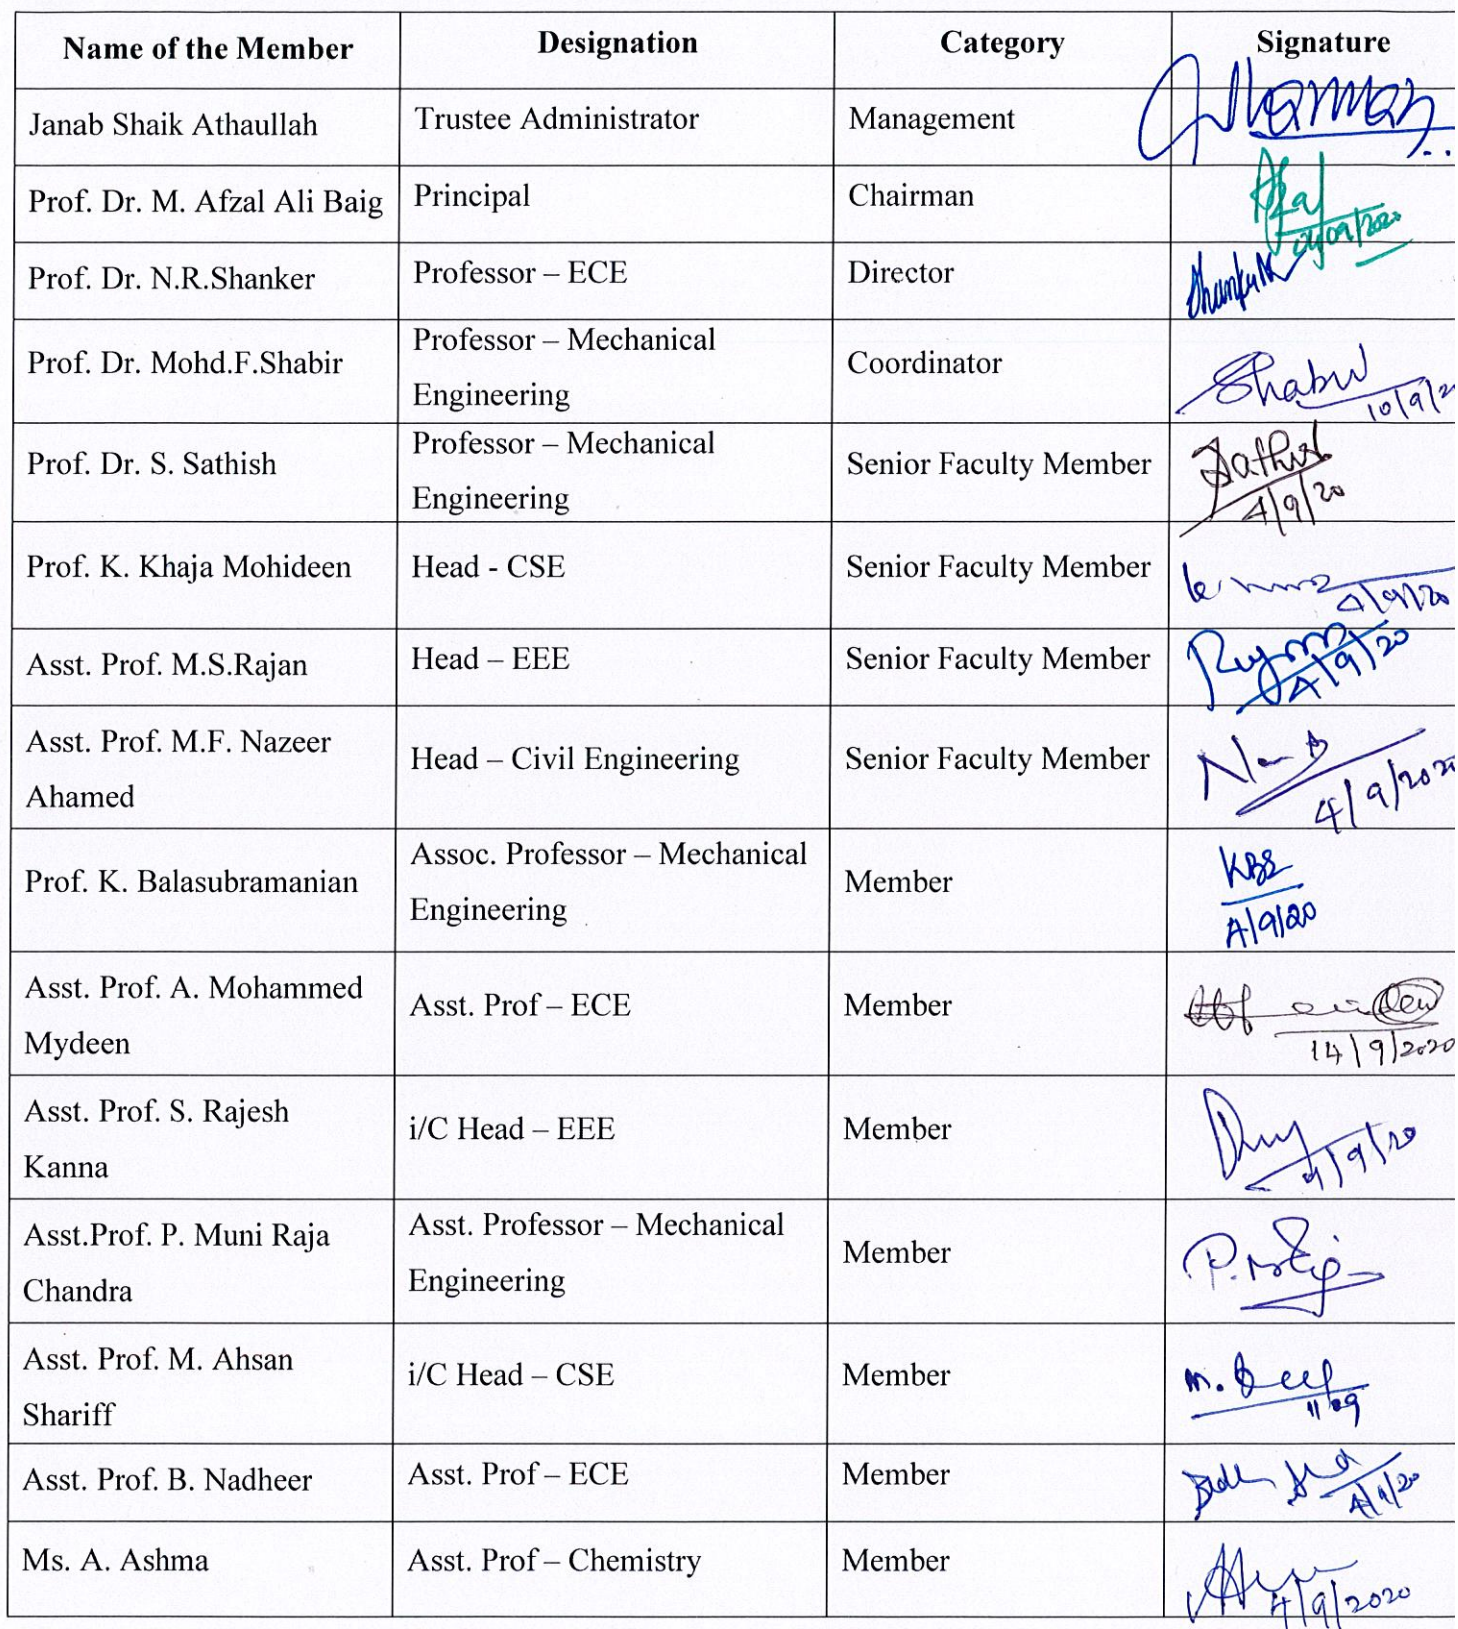 Name of the Member Designation Category Signature
Janab Shaik Athaullah Trustee Administrator Management
Prof. Dr. M. Afzal Ali Baig Principal Chairman
04/09/2020
Prof. Dr. N.R.Shanker Professor – ECE Director
Prof. Dr. Mohd.F.Shabir Professor – Mechanical Coordinator Shabir
Engineering 10/9/2
Prof. Dr. S. Sathish Professor – Mechanical Senior Faculty Member Sathish
Engineering 4/9/20
Prof. K. Khaja Mohideen Head - CSE Senior Faculty Member
4/9/20
Asst. Prof. M.S.Rajan Head – EEE Senior Faculty Member
4/9/20
Asst. Prof. M.F. Nazeer Head – Civil Engineering Senior Faculty Member
Ahamed 4/9/2020
Prof. K. Balasubramanian Assoc. Professor – Mechanical Member KBS
Engineering 4/9/20
Asst. Prof. A. Mohammed Asst. Prof – ECE Member
Mydeen 14/9/2020
Asst. Prof. S. Rajesh i/C Head – EEE Member
Kanna 4/9/20
Asst.Prof. P. Muni Raja Asst. Professor – Mechanical Member
Chandra Engineering
Asst. Prof. M. Ahsan i/C Head – CSE Member
Shariff
Asst. Prof. B. Nadheer Asst. Prof – ECE Member
4/9/20
Ms. A. Ashma Asst. Prof – Chemistry Member
4/9/2020